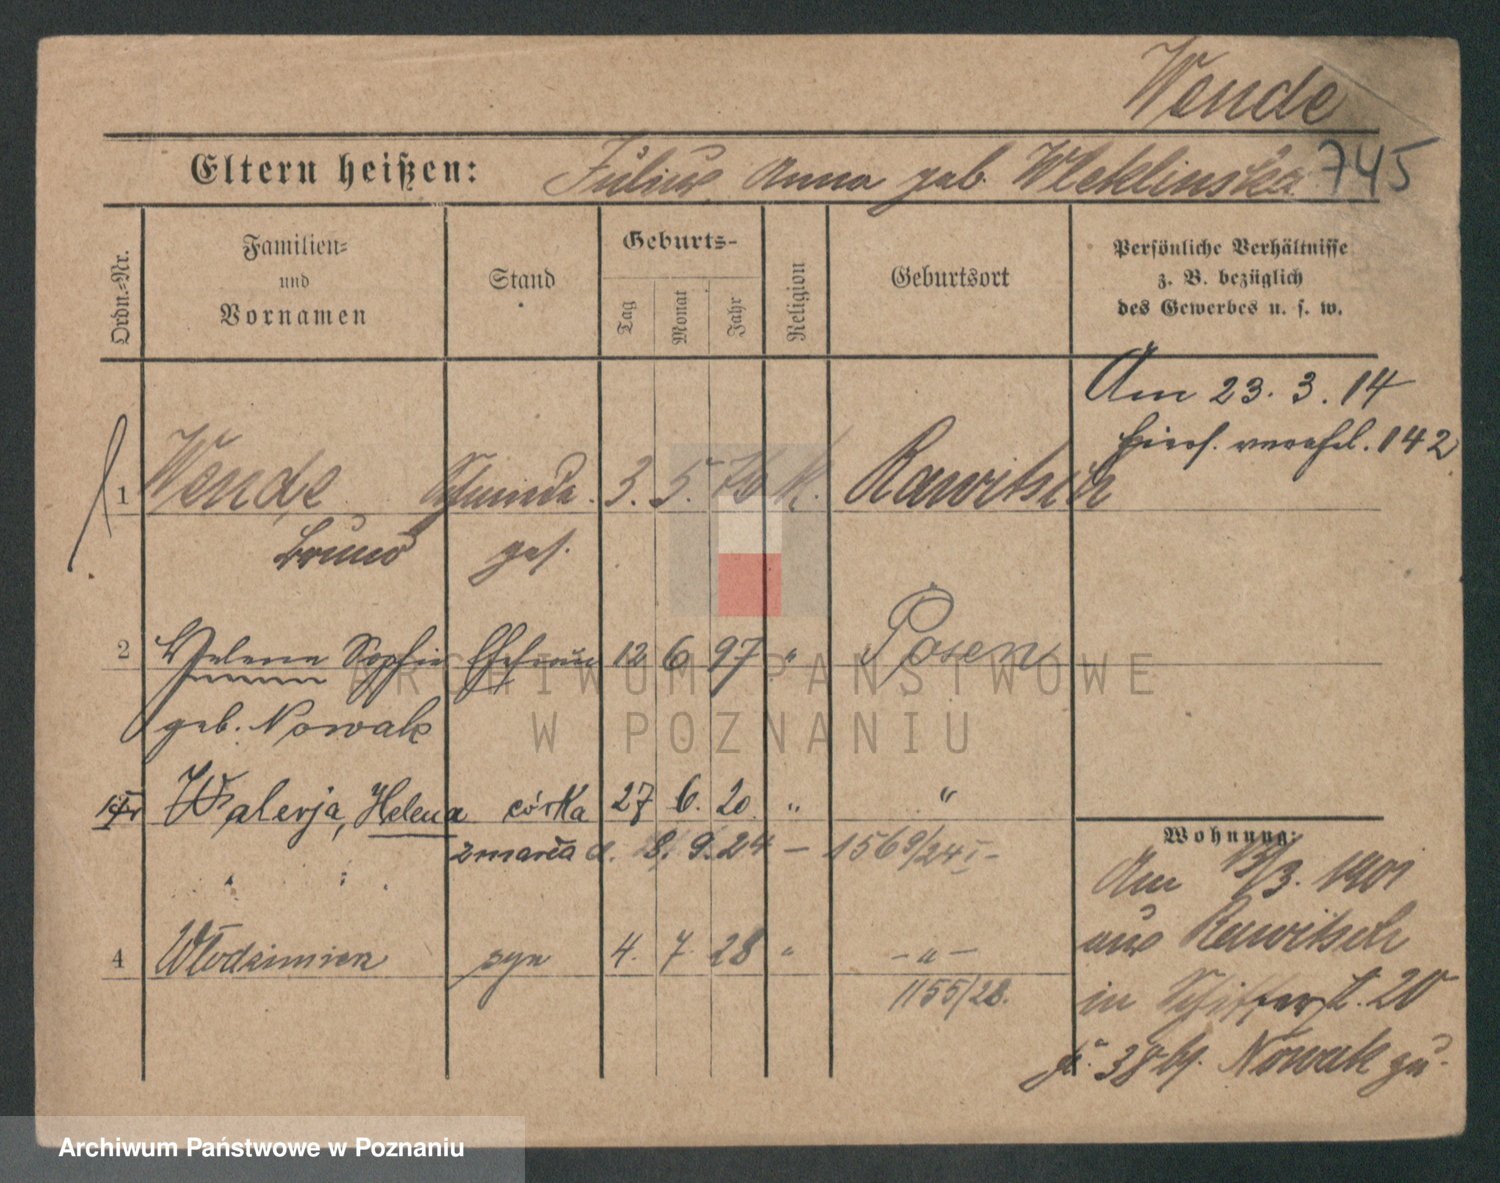 Wende
Eltern heißen: Julius Anna geb. Wleklinska 745
Ordn.-Nr.
Familien-
und
Vornamen
Stand
Geburts-
Tag
Monat
Jahr
Religion
Geburtsort
Persönliche Verhältnisse
z. B. bezüglich
des Gewerbes u. s. w.
Am 23. 3. 14
verehel. 142
1 Wende Schmiede 3. 5. 76 K. Rawitsch
Bruno ges.
2 Helene Sophie Ehefrau 12 6 97 " Posen
geb. Nowak
Walerja, Helena córka 27 6. 20 " "
zmarła d. 8. 9. 24 — 1569/24 I —
4 Włodzimierz syn 4. 7. 28 " — " —
1155/28.
Wohnung:
Am 13/3. 1901
aus Rawitsch
in Schifferst. 20
bei Nowak zu-
ARCHIWUM PAŃSTWOWE
W POZNANIU
Archiwum Państwowe w Poznaniu